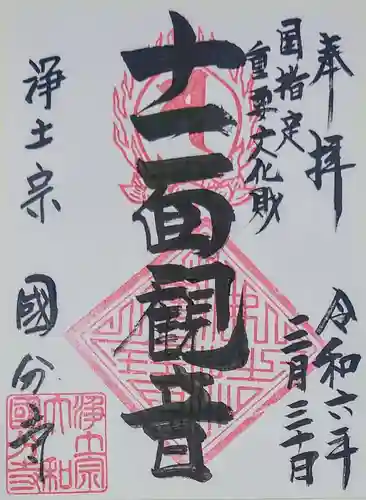 奉拝
令和六年
三月三十日
国指定
重要文化財
十一面観音
浄土宗
國分寺
浄土宗
大和
國分寺